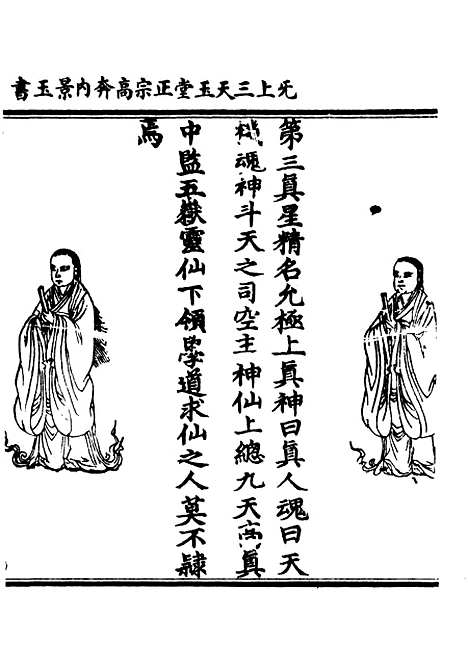 无上三天玉堂正宗高奔內景玉書
第三眞星精名允極上眞神曰眞人魂曰天
機魂神斗天之司空主神仙上總九天高眞
中監五嶽靈仙下領學道求仙之人莫不隷
焉